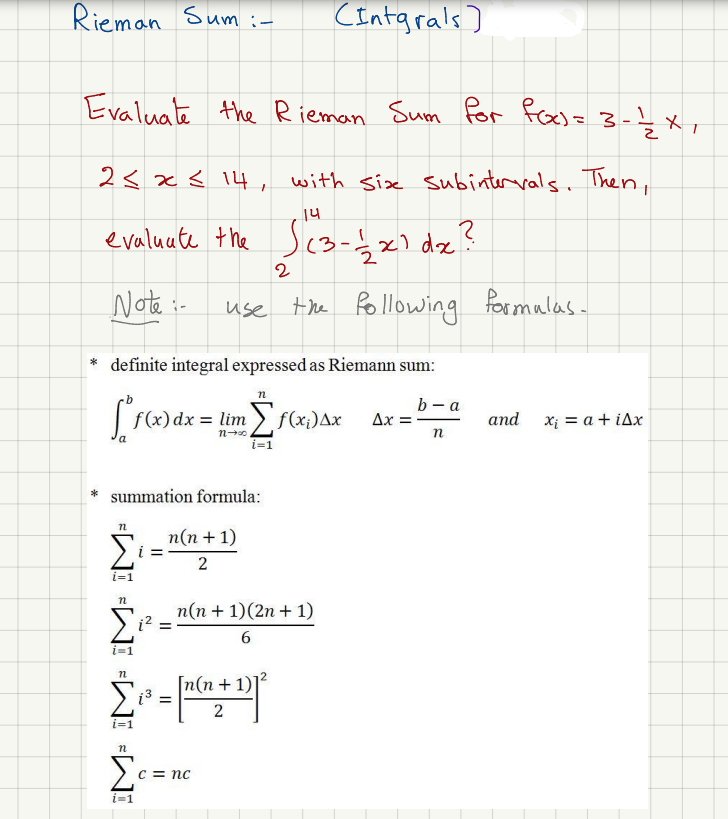 Rieman Sum :- (Intgrals)
Evaluate the Rieman Sum for f(x) = 3 - 1/2 x,
2 ≤ x ≤ 14, with six subintervals. Then,
evaluate the ∫₂¹⁴ (3 - 1/2 x) dx ?
Note :- use the following formulas.
* definite integral expressed as Riemann sum:
∫ₐᵇ f(x) dx = lim n→∞ ∑ i=1 n f(xᵢ)Δx Δx = (b − a)/n and xᵢ = a + iΔx
* summation formula:
∑ i=1 n i = n(n + 1)/2
∑ i=1 n i² = n(n + 1)(2n + 1)/6
∑ i=1 n i³ = [n(n + 1)/2]²
∑ i=1 n c = nc